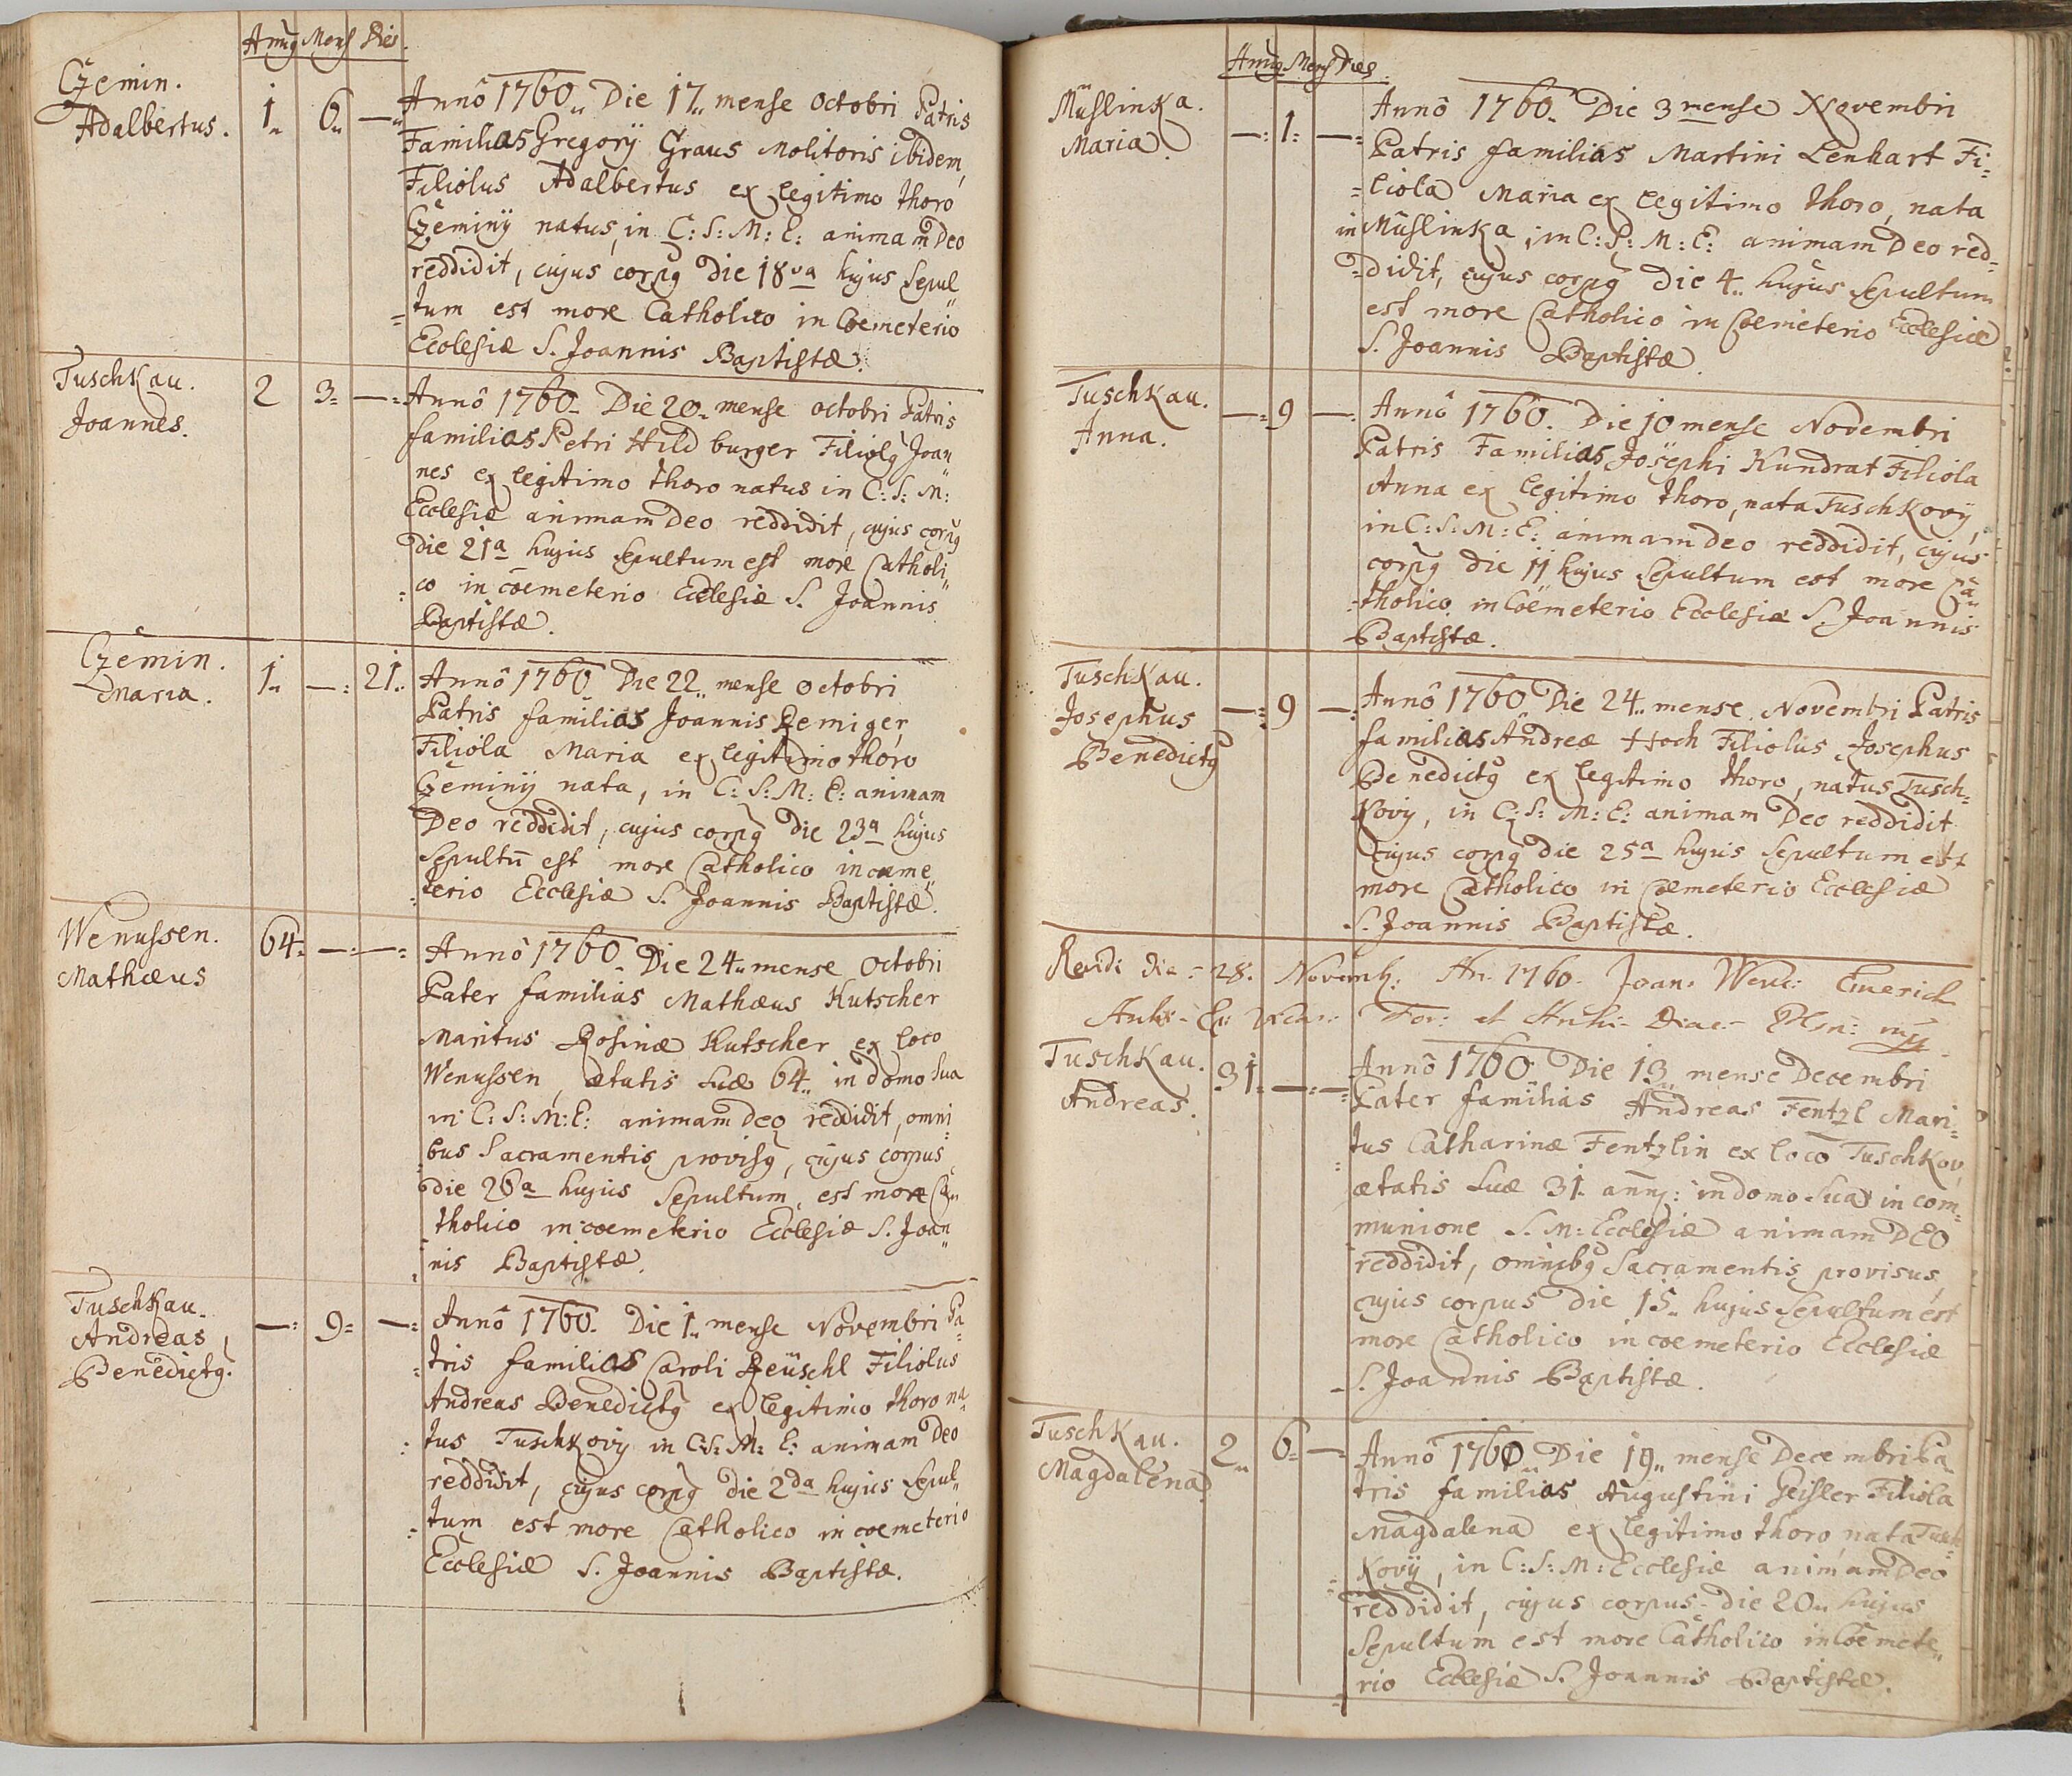 Annus Mens Dies.
Czemin.
Adalbertus.
1„ 6„ —„
Annô 1760„ Die 17„ mense octobri Patris
Familias Gregorÿ Graus Molitoris ibidem,
Filiolus Adalbertus ex legitimo thoro
Czeminÿ natus, in C: S: M: E: animam Deo
reddidit, cujus corpus Die 18va hujus Sepul
=tum est more Catholico in Coemeterio
Ecclesiæ S. Joannis Baptistæ.
Tuschkau.
Joannes.
2 3= —=
Annô 1760= Die 20= mense octobri Patris
familias Petri Hildburger Filiolus Joan„
nes ex legitimo thoro natus in C: S: M:
Ecclesiæ animam Deo reddidit, cujus corpus
die 21a hujus Sepultum est more Catholi„
=co in cœmeterio Ecclesiæ S. Joannis
Baptistæ.
Czemin.
Maria.
1„ —: 21„
Annô 1760 Die 22„ mense octobri
Patris familias Joannis Remiger,
Filiola Maria ex legitimo thoro
Czeminÿ nata, in C: S: M: E: animam
Deo reddidit, cujus corpus die 23a hujus
Sepultū est more Catholico in cœme„
=terio Ecclesiæ S. Joannis Baptistæ.
Wenussen.
Mathæus
64= —: —=
Annô 1760= Die 24„ mense octobri
Pater familias Mathæus Kutscher
Maritus Rosinæ Kutscher ex loco
Wenussen, ætatis suæ 64„ in domo sua
in C: S: M: E: animam Deo reddidit, omni=
=bus Sacramentis provisus, cujus corpus
die 26a hujus Sepultum est more Ca„
=tholico in coemeterio Ecclesiæ S. Joan„
=nis Baptistæ.
Tuschkau.
Andreas
Benedictus.
—: 9= —:
Annô 1760= Die 1„ mense Novembri Pa=
=tris familias Caroli Reüschl Filiolus
Andreas Benedictus ex legitimo thoro na=
=tus Tuschkovÿ in C: S: M: E: animam Deo
reddidit, cujus corpus die 2da hujus Sepul„
=tum est more Catholico in coemeterio
Ecclesiæ S. Joannis Baptistæ.
Annus Mens Dies
Müslinka.
Maria.
—: 1: —=
Annô 1760= Die 3 mense Novembri
Patris familias Martini Lenhart Fi=
=liola Maria ex legitimo thoro, nata
in Müslinka, in C: S: M: E: animam Deo red=
=didit, cujus corpus Die 4„ hujus Sepultum
est more Catholico in Coemeterio Ecclesiæ
S. Joannis Baptistæ.
Tuschkau.
Anna.
—= 9 —:
Annô 1760. Die 10 mense Novembri
Patris Familias Josephi Kundrat Filiola
Anna ex legitimo thoro, nata Tuschkovÿ,
in C: S: M: E: animam Deo reddidit, cujus
corpus die 11 hujus Sepultum est more Ca„
=tholico in Coemeterio Ecclesiæ S. Joannis
Baptistæ.
Tuschkau.
Josephus
Benedictus
—: 9 —:
Annô 1760 Die 24„ mense Novembri Patris
familias Andreæ Hoch Filiolus Josephus
Benedictus ex legitimo thoro, natus Tusch=
kovÿ, in C: S: M: E: animam Deo reddidit
cujus corpus die 25a hujus Sepultum est
more Catholico in Coemeterio Ecclesiæ
S. Joannis Baptistæ.
Revidi die = 28. Novemb: An. 1760. Joan. Wenc: Emerich
For: et Archi- Diac- Plsn: mpp
Tuschkau.
Andreas.
31= —: —=
Annô 1760 Die 13„ mense Decembri
Pater familias Andreas Fentzl Mari=
=tus Catharinæ Fentzlin ex loco Tuschkov,
ætatis suæ 31. ann: in domo sua in com=
munione S. M: Ecclesiæ animam DEO
reddidit, omnibus Sacramentis provisus,
cujus corpus die 15„ hujus Sepultum est
more Catholico in coemeterio Ecclesiæ
S. Joannis Baptistæ.
Tuschkau.
Magdalena.
2„ 6= —
Annô 1760„ Die 19„ mense Decembri Pa=
tris familias Augustini Geisler Filiola
Magdalena ex legitimo thoro, nata Tusch=
=kovÿ, in C: S: M: Ecclesiæ animam Deo
reddidit, cujus corpus die 20„ hujus
Sepultum est more Catholico in Coemete„
rio Ecclesiæ S. Joannis Baptistæ.